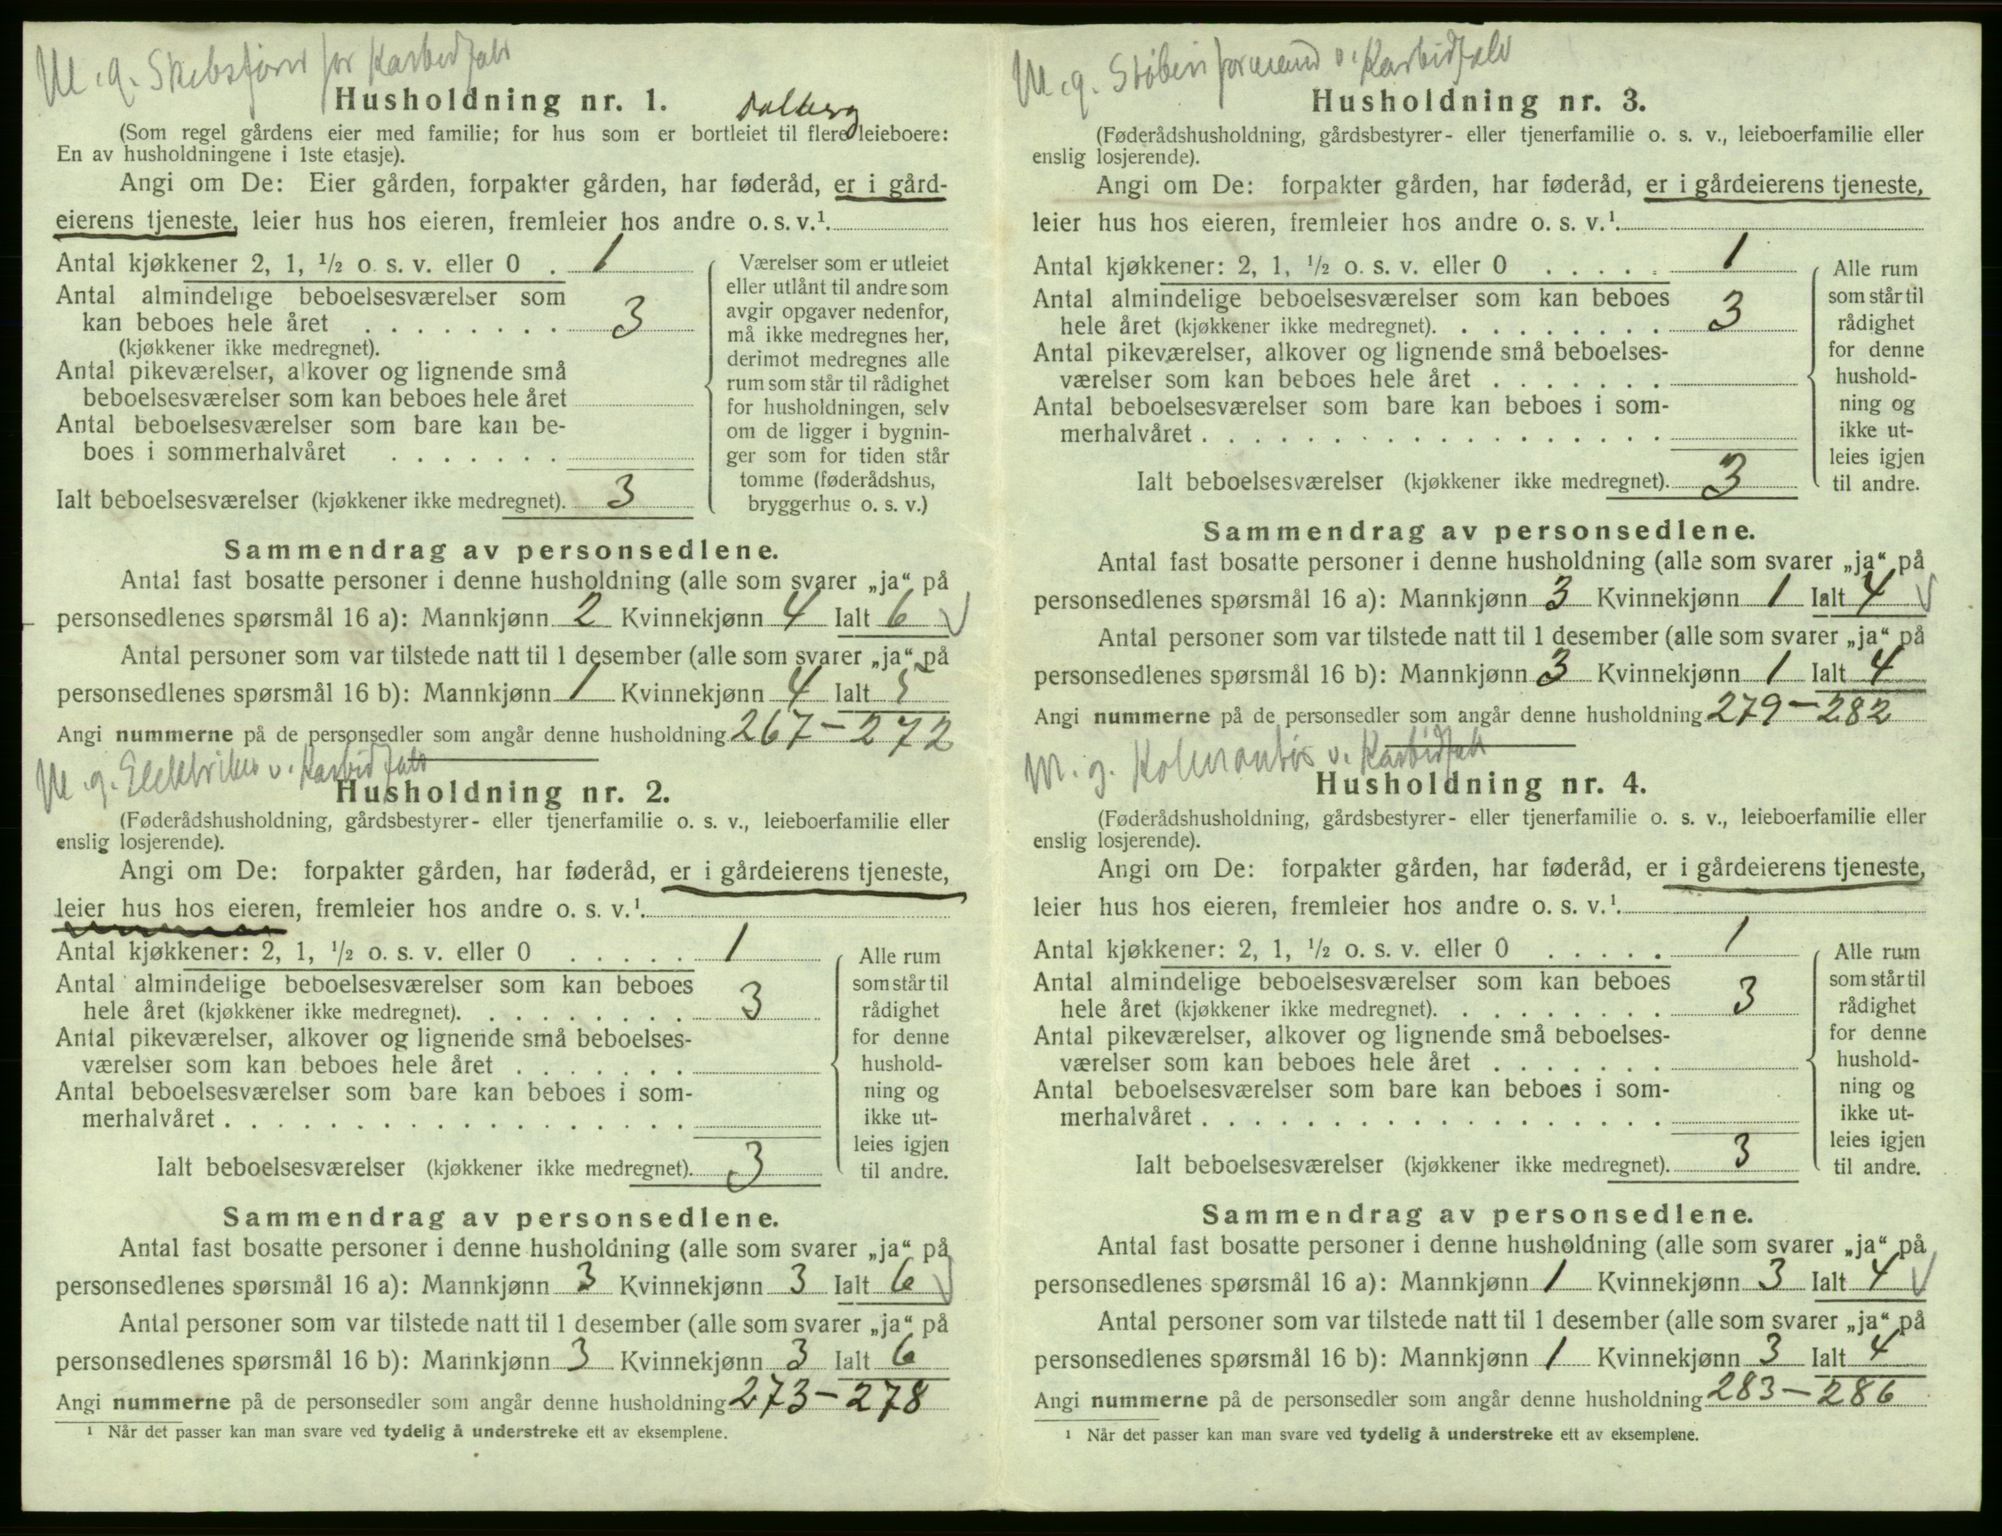 M. g. Skibsfører for Karbidfabr
Husholdning nr. 1.
Dalberg
(Som regel gårdens eier med familie; for hus som er bortleiet til flere leieboere:
En av husholdningene i 1ste etasje).
Angi om De: Eier gården, forpakter gården, har føderåd, er i gård-
eierens tjeneste, leier hus hos eieren, fremleier hos andre o. s. v.¹.
Antal kjøkkener 2, 1, ½ o. s. v. eller 0 . 1
Antal almindelige beboelsesværelser som
kan beboes hele året . . . . . . . . 3
(kjøkkener ikke medregnet).
Antal pikeværelser, alkover og lignende små
beboelsesværelser som kan beboes hele året
Antal beboelsesværelser som bare kan be-
boes i sommerhalvåret . . . . . . .
Ialt beboelsesværelser (kjøkkener ikke medregnet). 3
Værelser som er utleiet
eller utlånt til andre som
avgir opgaver nedenfor,
må ikke medregnes her,
derimot medregnes alle
rum som står til rådighet
for husholdningen, selv
om de ligger i bygnin-
ger som for tiden står
tomme (føderådshus,
bryggerhus o. s. v.)
Sammendrag av personsedlene.
Antal fast bosatte personer i denne husholdning (alle som svarer „ja“ på
personsedlenes spørsmål 16 a): Mannkjønn 2 Kvinnekjønn 4 Ialt 6
Antal personer som var tilstede natt til 1 desember (alle som svarer „ja“ på
personsedlenes spørsmål 16 b): Mannkjønn 1 Kvinnekjønn 4 Ialt 5
Angi nummerne på de personsedler som angår denne husholdning 267-272
M. g. Elektriker v. Karbidfabr
Husholdning nr. 2.
(Føderådshusholdning, gårdsbestyrer- eller tjenerfamilie o. s. v., leieboerfamilie eller
enslig losjerende).
Angi om De: forpakter gården, har føderåd, er i gårdeierens tjeneste,
leier hus hos eieren, fremleier hos andre o. s. v.¹.
Antal kjøkkener: 2, 1, ½ o. s. v. eller 0 . . . . . 1
Antal almindelige beboelsesværelser som kan beboes
hele året (kjøkkener ikke medregnet). . . . . . . . . 3
Antal pikeværelser, alkover og lignende små beboelses-
værelser som kan beboes hele året . . . . . . .
Antal beboelsesværelser som bare kan beboes i som-
merhalvåret . . . . . . . . . . . . . . . . . .
Ialt beboelsesværelser (kjøkkener ikke medregnet). 3
Alle rum
som står til
rådighet
for denne
hushold-
ning og
ikke ut-
leies igjen
til andre.
Sammendrag av personsedlene.
Antal fast bosatte personer i denne husholdning (alle som svarer „ja“ på
personsedlenes spørsmål 16 a): Mannkjønn 3 Kvinnekjønn 3 Ialt 6
Antal personer som var tilstede natt til 1 desember (alle som svarer „ja“ på
personsedlenes spørsmål 16 b): Mannkjønn 3 Kvinnekjønn 3 Ialt 6
Angi nummerne på de personsedler som angår denne husholdning 273-278
¹ Når det passer kan man svare ved tydelig å understreke ett av eksemplene.
M. g. Støberiformand v. Karbidfabr
Husholdning nr. 3.
(Føderådshusholdning, gårdsbestyrer- eller tjenerfamilie o. s. v., leieboerfamilie eller
enslig losjerende).
Angi om De: forpakter gården, har føderåd, er i gårdeierens tjeneste,
leier hus hos eieren, fremleier hos andre o. s. v.¹.
Antal kjøkkener: 2, 1, ½ o. s. v. eller 0 . . . . . 1
Antal almindelige beboelsesværelser som kan beboes
hele året (kjøkkener ikke medregnet). . . . . . . . . 3
Antal pikeværelser, alkover og lignende små beboelses-
værelser som kan beboes hele året . . . . . . .
Antal beboelsesværelser som bare kan beboes i som-
merhalvåret . . . . . . . . . . . . . . . . . .
Ialt beboelsesværelser (kjøkkener ikke medregnet). 3
Alle rum
som står til
rådighet
for denne
hushold-
ning og
ikke ut-
leies igjen
til andre.
Sammendrag av personsedlene.
Antal fast bosatte personer i denne husholdning (alle som svarer „ja“ på
personsedlenes spørsmål 16 a): Mannkjønn 3 Kvinnekjønn 1 Ialt 4
Antal personer som var tilstede natt til 1 desember (alle som svarer „ja“ på
personsedlenes spørsmål 16 b): Mannkjønn 3 Kvinnekjønn 1 Ialt 4
Angi nummerne på de personsedler som angår denne husholdning 279-282
M. g. v. Karbidfabr
Husholdning nr. 4.
(Føderådshusholdning, gårdsbestyrer- eller tjenerfamilie o. s. v., leieboerfamilie eller
enslig losjerende).
Angi om De: forpakter gården, har føderåd, er i gårdeierens tjeneste,
leier hus hos eieren, fremleier hos andre o. s. v.¹.
Antal kjøkkener: 2, 1, ½ o. s. v. eller 0 . . . . . 1
Antal almindelige beboelsesværelser som kan beboes
hele året (kjøkkener ikke medregnet). . . . . . . . . 3
Antal pikeværelser, alkover og lignende små beboelses-
værelser som kan beboes hele året . . . . . . .
Antal beboelsesværelser som bare kan beboes i som-
merhalvåret . . . . . . . . . . . . . . . . . .
Ialt beboelsesværelser (kjøkkener ikke medregnet). 3
Alle rum
som står til
rådighet
for denne
hushold-
ning og
ikke ut-
leies igjen
til andre.
Sammendrag av personsedlene.
Antal fast bosatte personer i denne husholdning (alle som svarer „ja“ på
personsedlenes spørsmål 16 a): Mannkjønn 1 Kvinnekjønn 3 Ialt 4
Antal personer som var tilstede natt til 1 desember (alle som svarer „ja“ på
personsedlenes spørsmål 16 b): Mannkjønn 1 Kvinnekjønn 3 Ialt 4
Angi nummerne på de personsedler som angår denne husholdning 283-286
¹ Når det passer kan man svare ved tydelig å understreke ett av eksemplene.